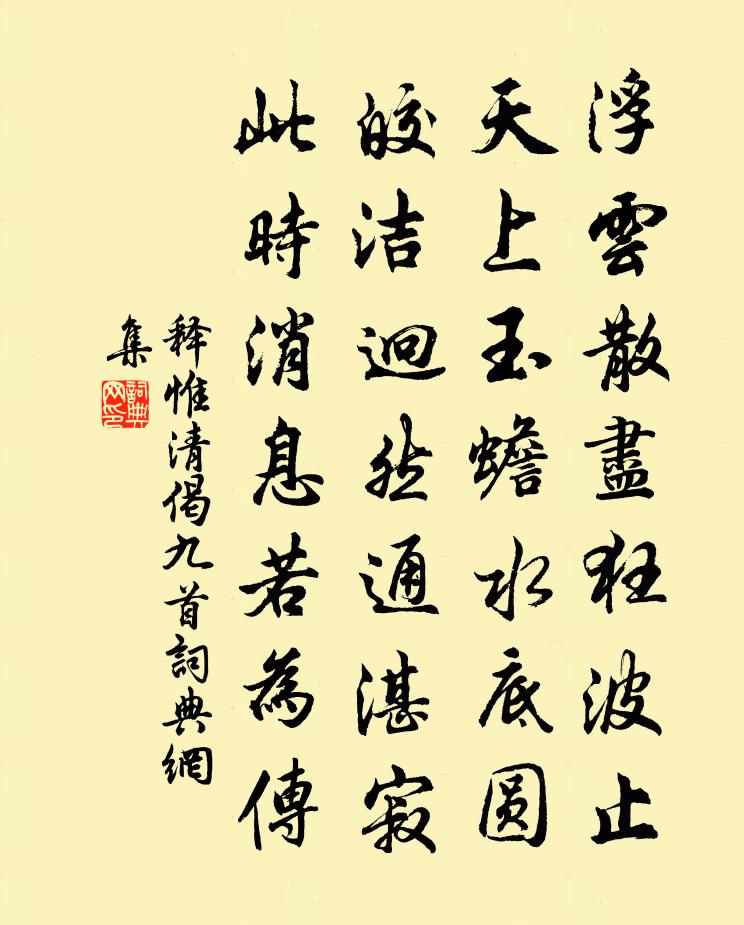 浮雲散盡狂波止
天上玉蟾水底圓
皎洁迥然通湛寂
此時消息若為傳
释惟清偈九首詞典網
集
詞典网印